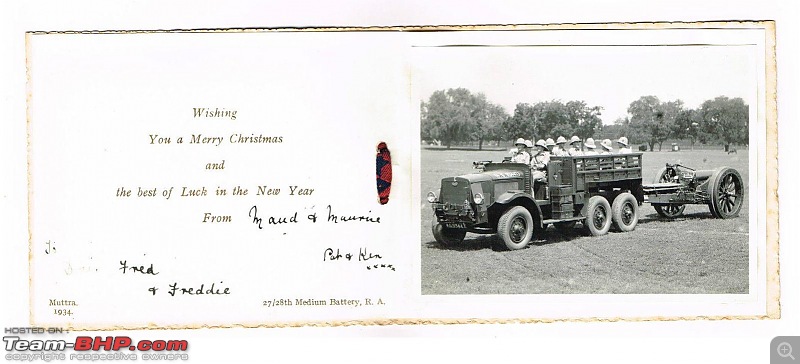 Wishing
You a Merry Christmas
and
the best of Luck in the New Year
From Maud & Maurice
Pat & Ken
xxxx
To
Fred
& Freddie
Muttra,
1934.
27/28th Medium Battery, R. A.
HOSTED ON
Team-BHP.com
copyright respective owners